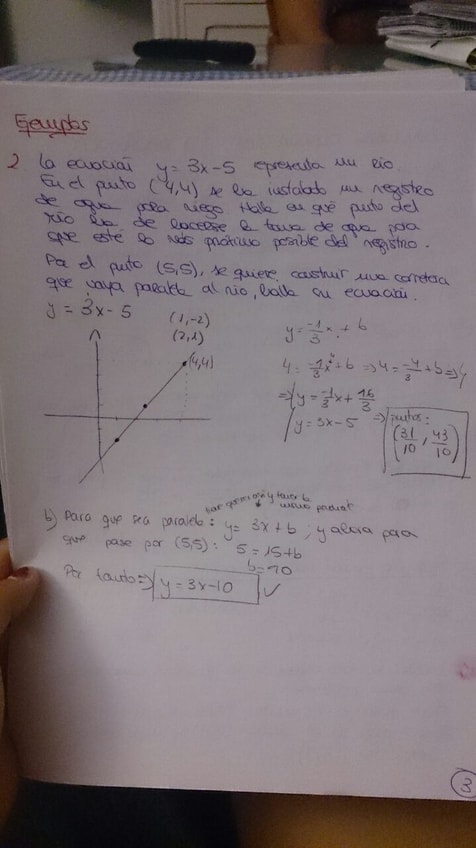 Ejemplos
2 La ecuación y = 3x-5 representa un río.
En el punto (4,4) se ha instalado un registro
de agua para riego. Halla en qué punto del
río ha de hacerse la toma de agua para
que esté lo más próximo posible del registro.
Por el punto (5,5), se quiere construir una carretera
que vaya paralela al río, halla su ecuación.
y = 3x-5
(1,-2)
(2,1)
(4,4)
y = -1/3 x + b
4 = -1/3 x⁴ + b => 4 = -4/3 + b =>
=> y = -1/3 x + 16/3
y = 3x-5
=> puntos:
(31/10, 43/10)
b) Para que sea paralela: y = 3x + b, y ahora para
que pase por (5,5): 5 = 15+b
b = -10
Por tanto => y = 3x-10 ✓
3